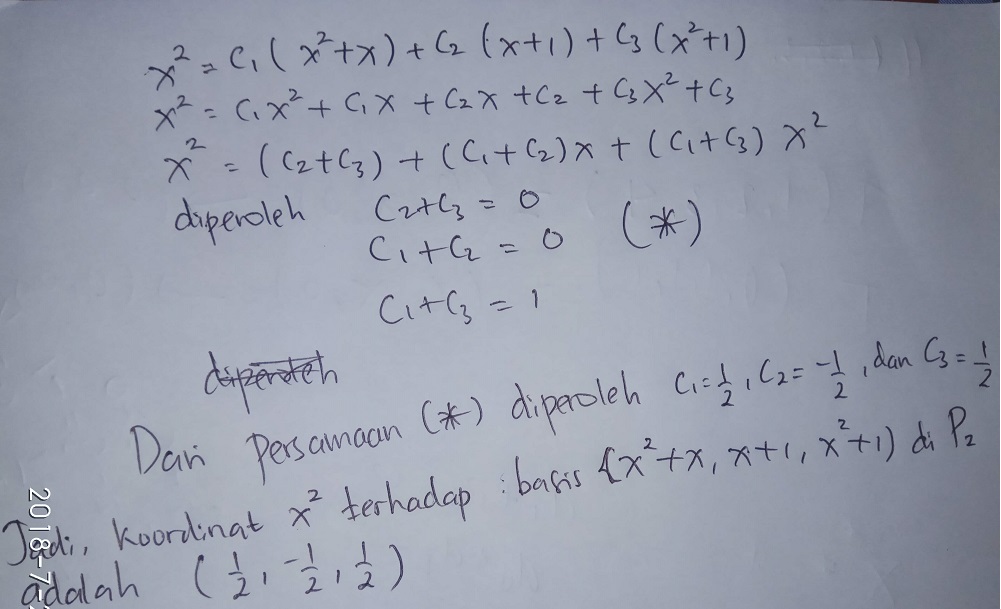 x² = C₁ ( x²+x) + C₂ (x+1) + C₃ (x²+1)
x² = C₁x² + C₁x + C₂x + C₂ + C₃x² + C₃
x² = (C₂+C₃) + (C₁+C₂)x + (C₁+C₃) x²
diperoleh C₂+C₃ = 0
C₁+C₂ = 0 (*)
C₁+C₃ = 1
diperoleh
Dari persamaan (*) diperoleh C₁=1/2, C₂=-1/2, dan C₃=1/2
Jadi, koordinat x² terhadap : basis {x²+x, x+1, x²+1) di P₂
adalah (1/2, -1/2, 1/2)
2018-7-